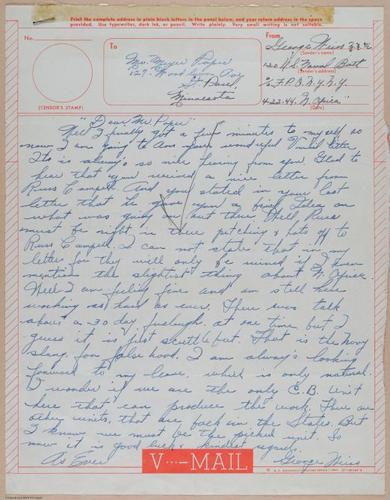 Print the complete address in plain block letters in the panel below, and your return address in the space
provided. Use typewriter, dark ink, or pencil. Write plainly. Very small writing is not suitable.
No.
(CENSOR'S STAMP)
To
Mrs. Meyer Papir
St. Paul,
Minnesota
From
George Weiss
(Sender's name)
120 U.S. Naval Batt
(Sender's address)
F.P.O. N.Y. N.Y.
4-22-44 N. Africa
"Dear Mrs. Papir"
Well I finally got a few minutes to myself so
now I am going to Ans your wonderful V mail letter.
Its is always so nice hearing from you Glad to
hear that you received a nice letter from
Russ Campell And you stated in your last
letter that he gave you a brief Idea on
what was going on out there Well, Russ
must be right in there pitching & hats off to
Russ Campell. I can not state that in
letter for they will only be ruined if I even
mention the slightest thing about N. Africa
Well I am feeling fine and am still here
working as hard as ever. There was talk
about a 30 day furlough at one time but I
guess it is just scuttle but. That is the Navy
slang for false hood. I am always looking
forward to my leave which is only natural.
I wonder if we are the only C.B. Unit
here that can produce the work. There are
other units, that are back in the States. But
I know we must be the picked unit. So
now it is good bye kindest regards
As Ever George Weiss
V···—MAIL